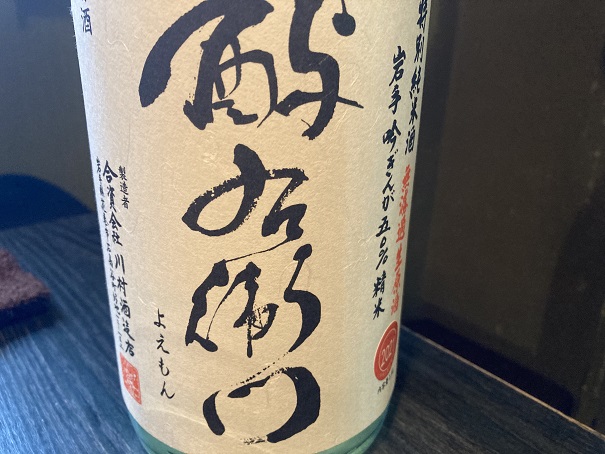 特別純米酒 無濾過生原酒
岩手吟ぎんが五〇%精米
酉与右衛門
よえもん
製造者
合資会社川村酒造店
酒